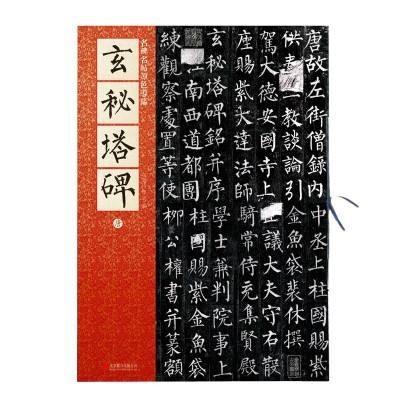 玄秘塔碑
唐
唐故左街僧錄內中丞上柱國賜紫
供教談論引金魚袋裴休撰
駕大德安國寺上議大夫守右散
座賜紫大達法師騎常侍充集賢殿
玄秘塔碑銘并序學士兼判院事上
江南西道都團柱國賜紫金魚袋
練觀察處置等使柳公權書并篆額